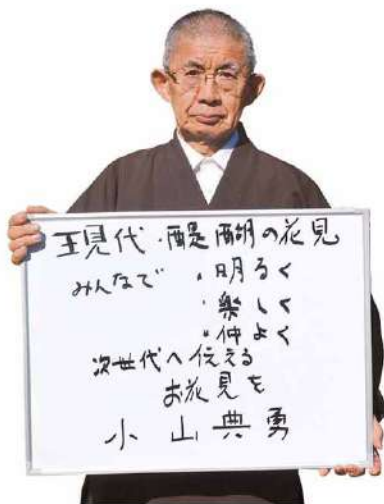 現代・醍醐の花見
みんなで ・明るく
・楽しく
・仲よく
次世代へ伝える
お花見を
小山典勇